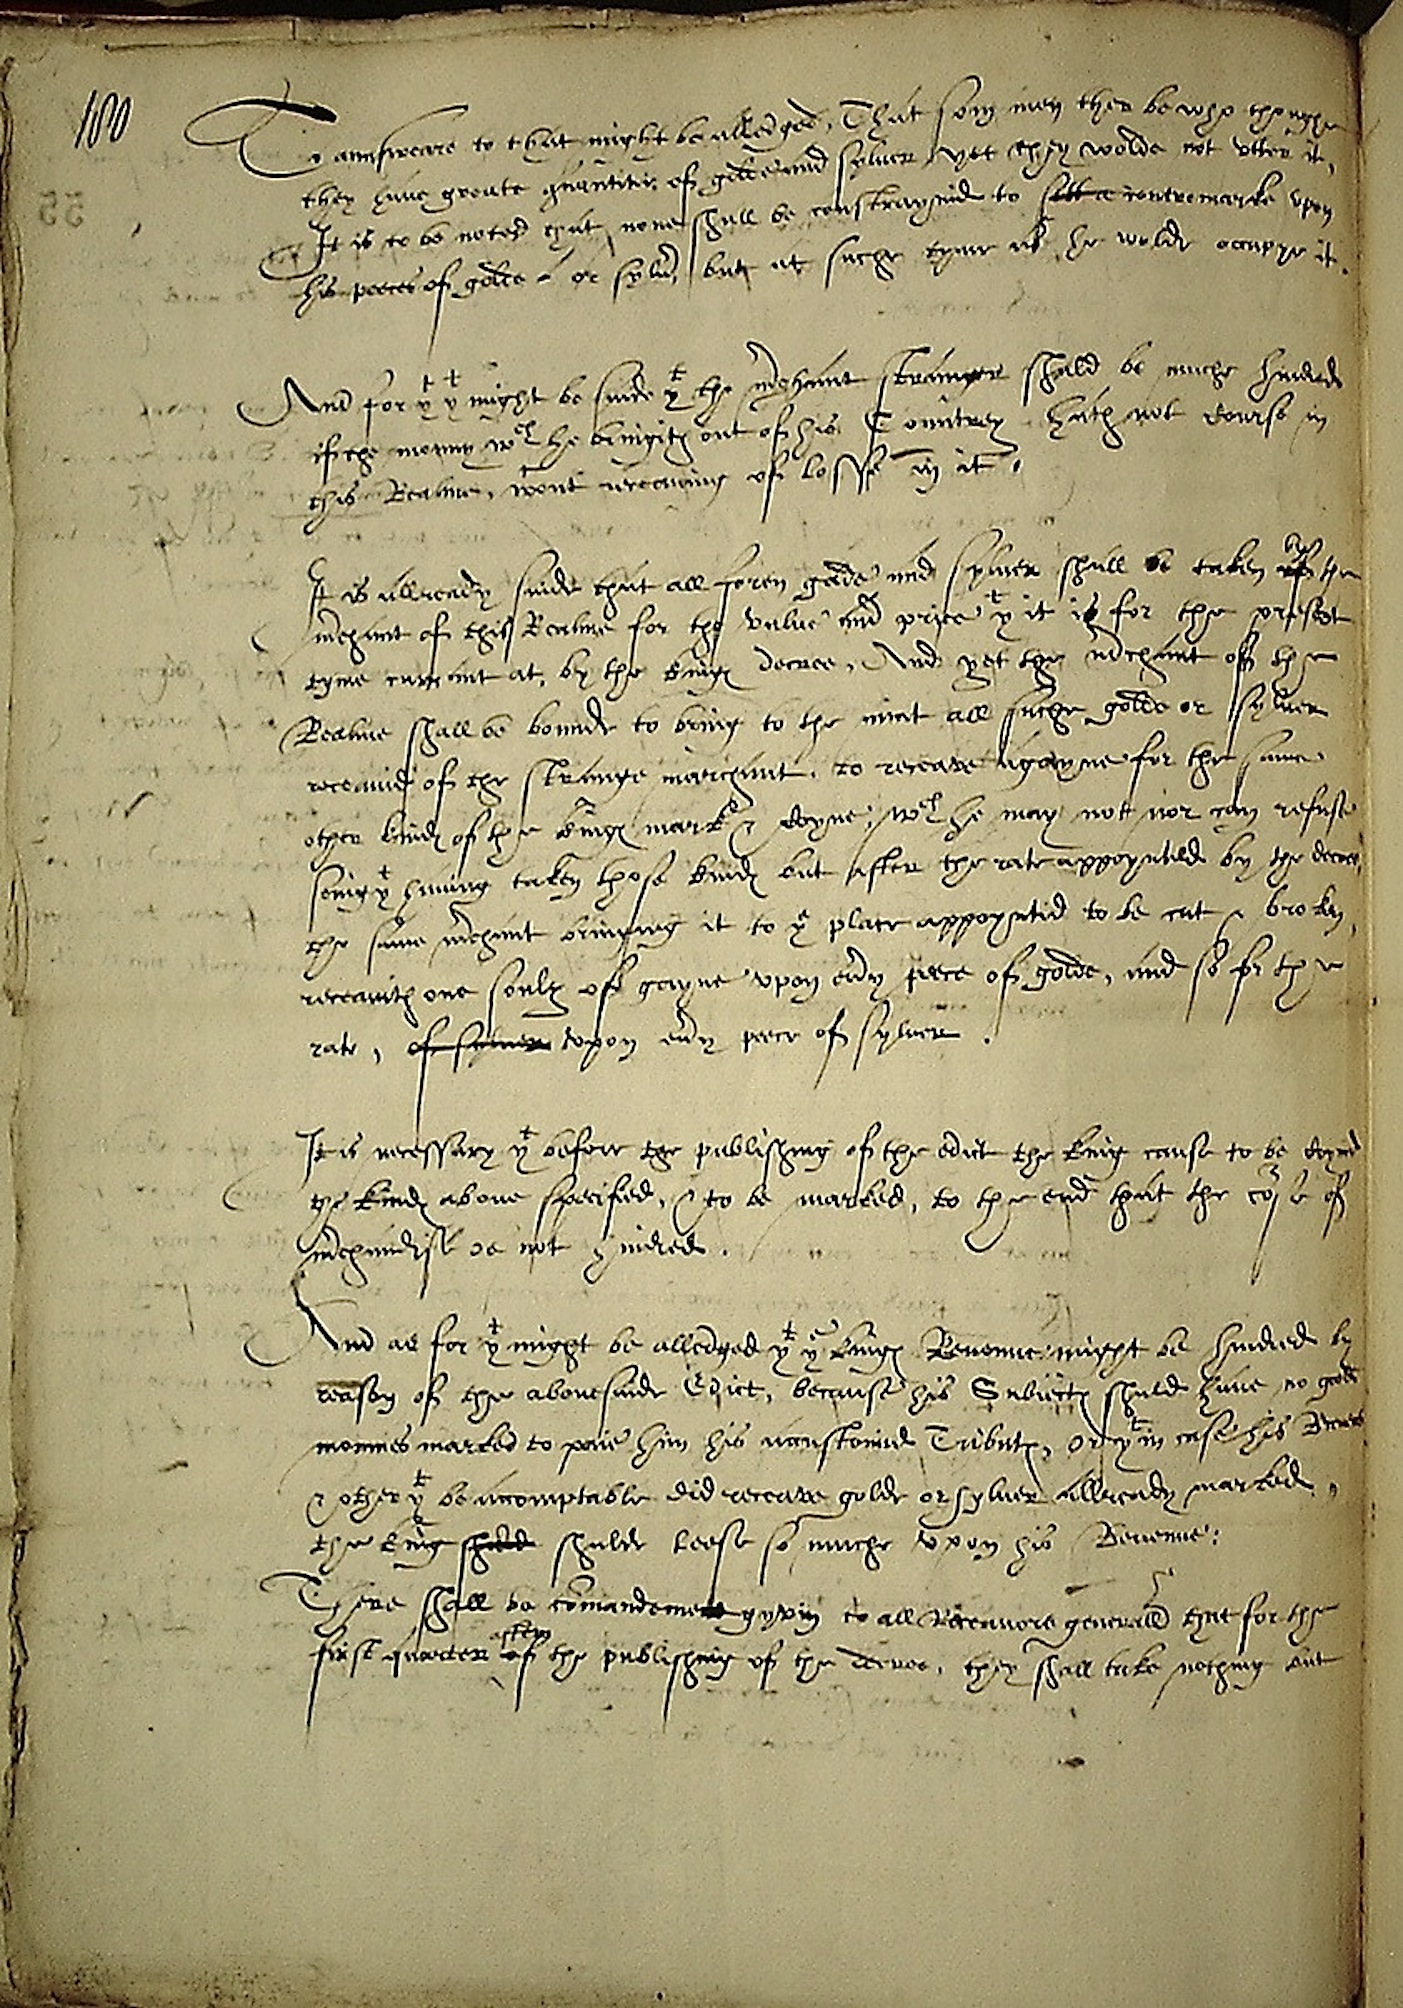 180
To aunsweare to that might be alledged, That som men ther be who thoughe
they have greate quantitie of golde and sylver yet they wolde not utter it,
It is to be noted that none shall be constraynid to sett a contremarke upon
his peeces of golde or sylver, but at suche tyme as he wolde occupye it.
And for yt yt might be saide yt the mrchaunt straunger shuld be muche hindred
if the monny wch he bringith out of his Countrey hath not course in
this Realme, wtout receaving of losse in it.
It is allready saide that all foren golde and sylver shall be taken of the
mrchant of this Realme for the value and price yt it is for the present
tyme currant at, by the kinges decree, And yet the mrchant of the
Realme shall be bounde to bring to the mint all suche golde or sylver
receavid of the strange marchant, to receave agayne for the same
other kindes of the kinges marke & coyne, wch he may not nor can refuse
seing yt having taken those kindes but after the rate appoyntid by the decree,
the same mrchant bringing it to ye place appoyntid to be cut & broken,
receavith one soulz of gayne upon every peece of golde, and so for the
rate, of sylver upon every peece of sylver.
It is necessary yt before the publishing of the edict the king cause to be coyned
the kindes above specified, & to be marked, to the end that the course of
mrchaundise be not hindred.
And as for yt might be alledged yt ye kinges Revenue might be hindred by
reason of the abovesaide Edict, because his Subiects shuld have no golde
monnies marked to paie him his accustomid Tributes, or yt in case his Receavors
& other yt be accomptable did receave golde or sylver allready marked,
the king shuld shulde leese so muche upon his Revenue:
There shall be comandement gyvin to all Receavors generall that for the
first quarter after of the publishing of the decree, they shall take nothing but